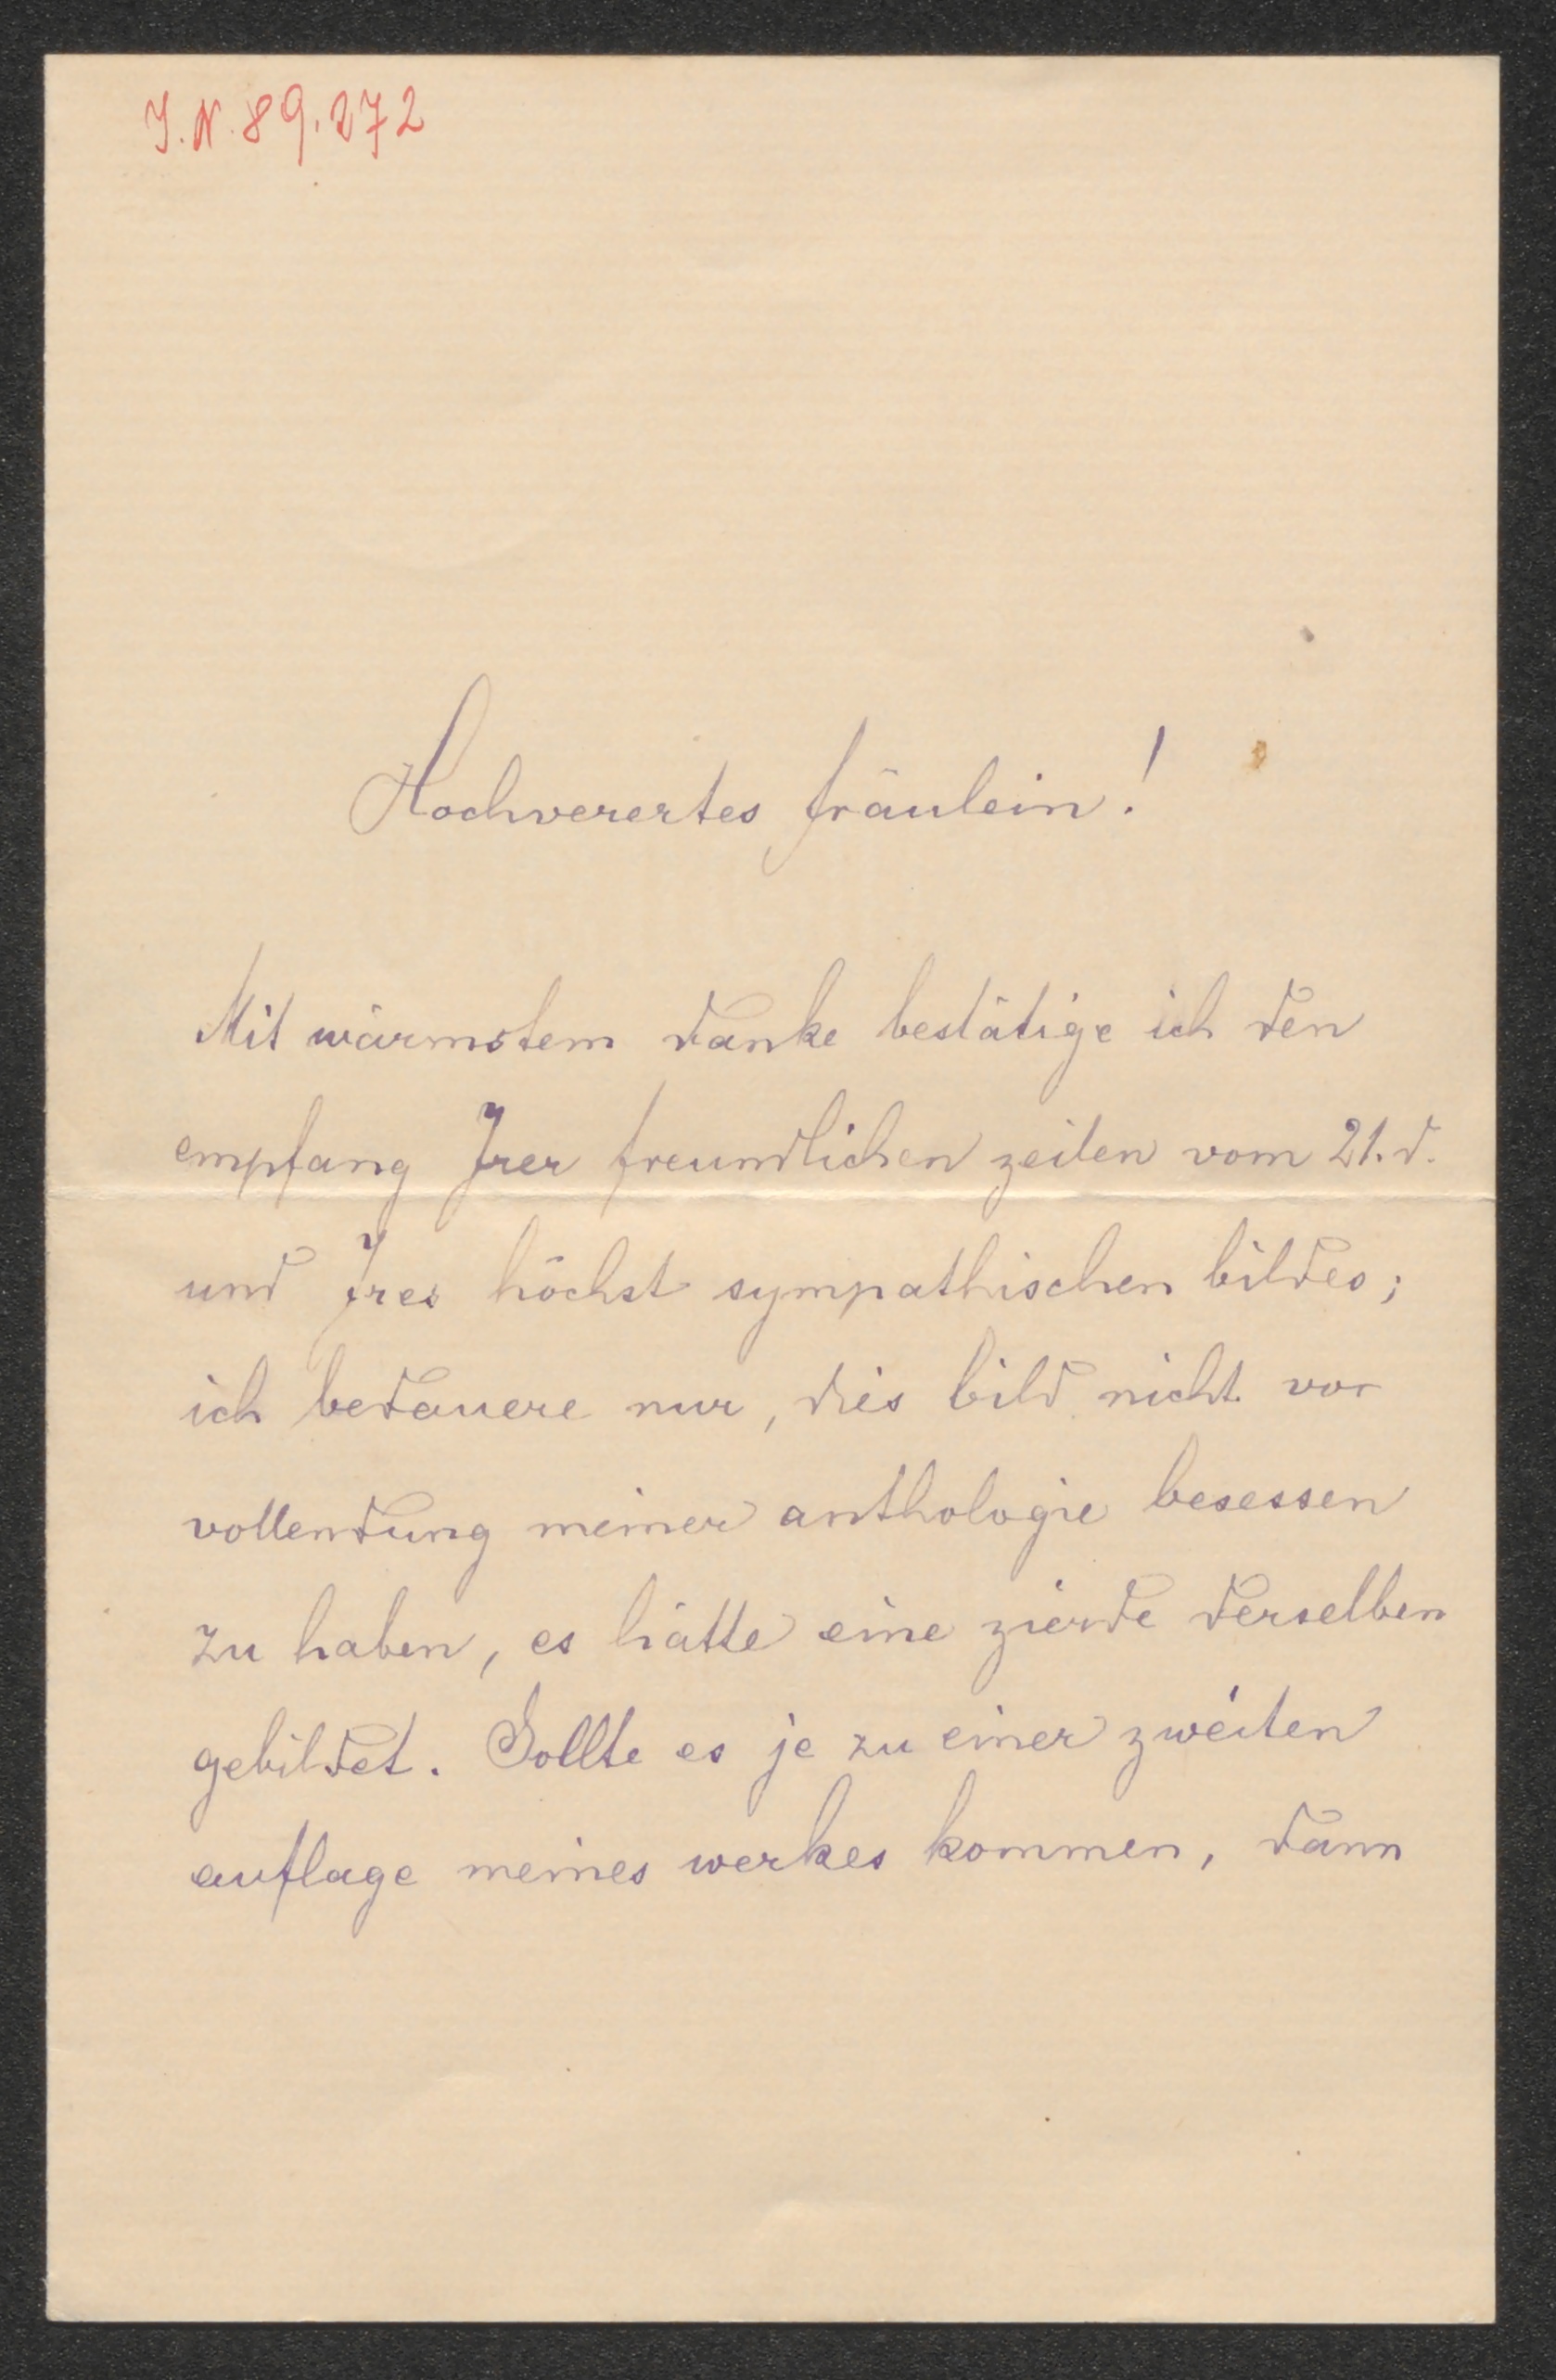 J.N. 89.272
Hochverertes fräulein!
Mit wärmstem danke bestätige ich den
empfang Irer freundlichen zeilen vom 21. d.
und Ires höchst sympathischen bildes;
ich bedauere nur, dies bild nicht vor
vollendung meiner anthologie besessen
zu haben, es hätte eine zierde derselben
gebildet. Sollte es je zu einer zweiten
auflage meines werkes kommen, dann